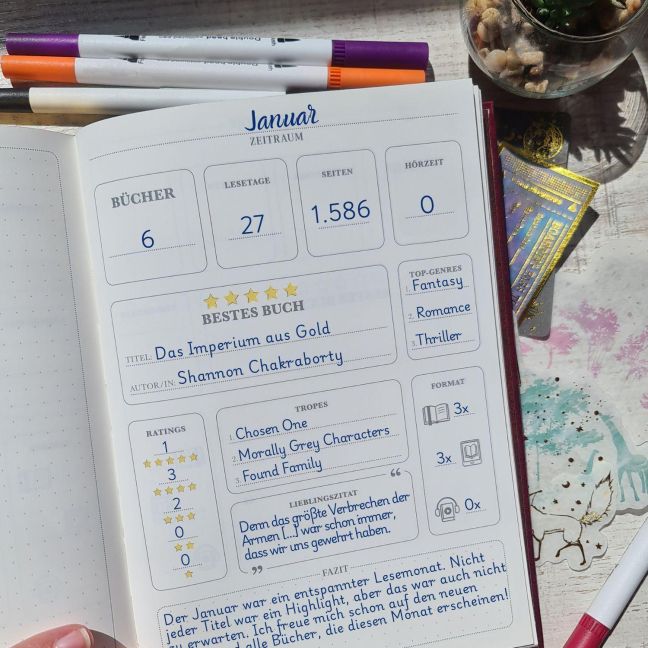 Double head
Januar
ZEITRAUM
BÜCHER
6
LESETAGE
27
SEITEN
1.586
HÖRZEIT
0
BESTES BUCH
TITEL: Das Imperium aus Gold
AUTOR/IN: Shannon Chakraborty
TOP-GENRES
1. Fantasy
2. Romance
3. Thriller
RATINGS
1
3
2
0
0
TROPES
1. Chosen One
2. Morally Grey Characters
3. Found Family
FORMAT
3x
3x
0x
LIEBLINGSZITAT
“
Denn das größte Verbrechen der
Armen [...] war schon immer,
dass wir uns gewehrt haben.
”
FAZIT
Der Januar war ein entspannter Lesemonat. Nicht
jeder Titel war ein Highlight, aber das war auch nicht
zu erwarten. Ich freue mich schon auf den neuen
alle Bücher, die diesen Monat erscheinen!